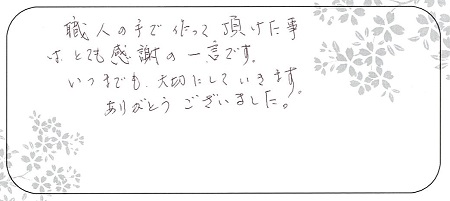 職人の手で作って頂けた事
は、とても感謝の一言です。
いつまでも、大切にしていきます。
ありがとうございました。